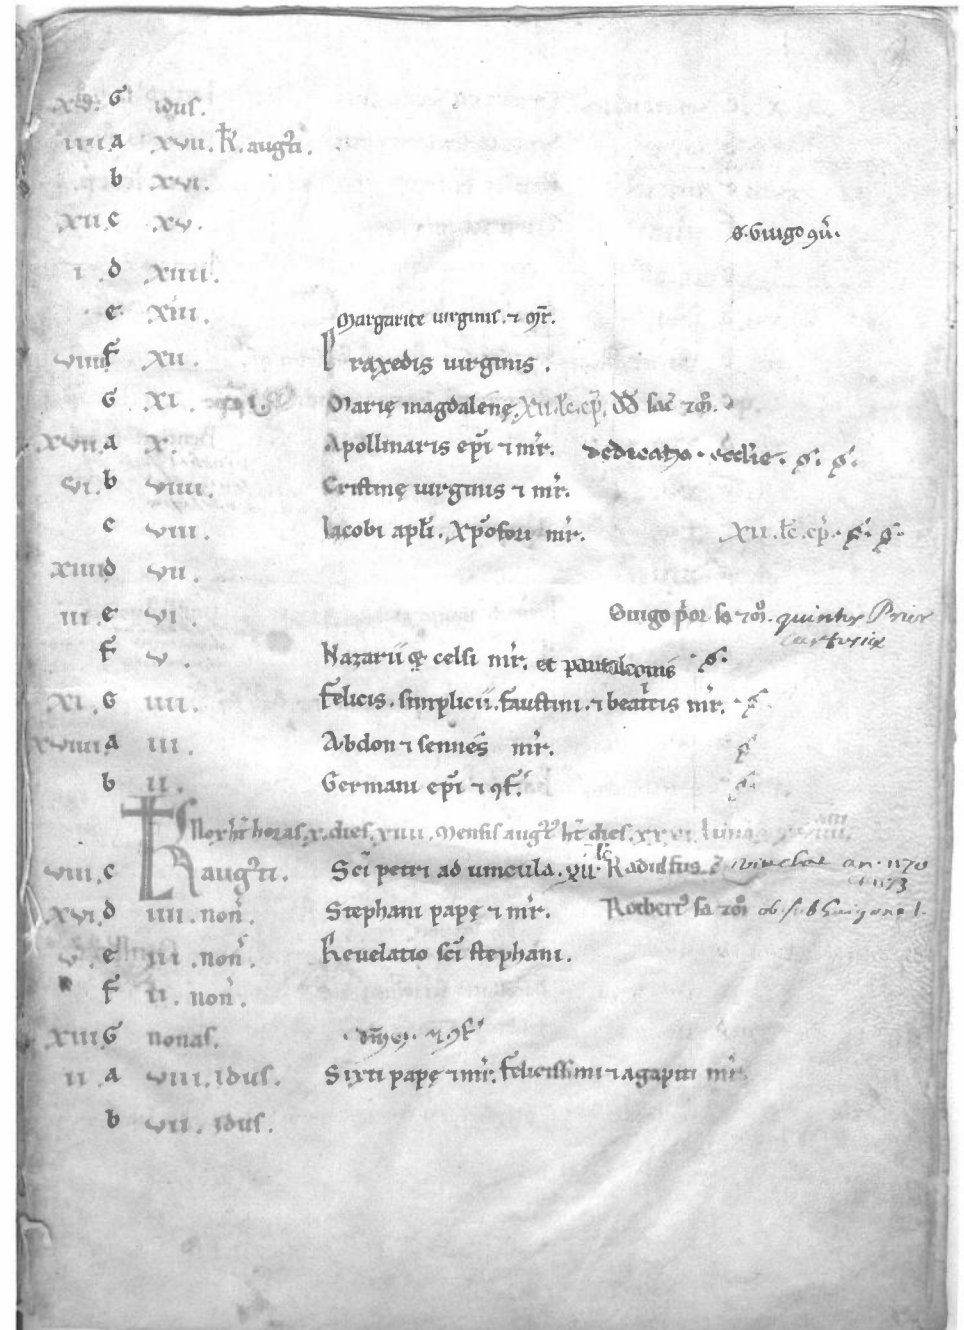 G idus.
iiii. a xvii. kł. augti.
b xvi.
xii. c xv. Guigo
i. d xiiii.
e xiii. Margarite uirginis. ⁊ mr̄.
viiii f xii. Praxedis uirginis.
G xi. Marię magdalenę. xii. lc̄. cp̄.
xvii. a x. Apollinaris ep̄i ⁊ mr̄. dedicatio. ecclie.
vi. b viiii. Cristinę uirginis ⁊ mr̄.
c viii. Iacobi apłi. Xp̄ofori mr̄. xii. lc̄. cp̄.
xiiii d vii.
iii. e vi. Guigo p̄or quintus Prior
Cartusiæ
f v. Nazarii & celsi mr̄. et pantaleonis
xi. G iiii. Felicis. simplicii. faustini. ⁊ beatricis mr̄.
xviiii. a iii. Abdon ⁊ sennes mr̄.
b ii. Germani ep̄i ⁊ ꝯf.
Nox ht̄ horas. x. dies. xiiii. Mensis augt ht̄ dies. luna
viii. c kł augti. Sc̄i petri ad uincula. xii. lc̄ Radulfus. vivebat an. 1170
1173
xvi. d iiii. non. Stephani papę ⁊ mr̄. Rotbert ob. sub Guigone 1.
v. e iii. non. Reuelatio sc̄i stephani.
f ii. non.
xiii G nonas.
ii a viii. idus. Sixti papę ⁊ mr̄. Felicissimi ⁊ agapiti mr̄.
b vii. idus.